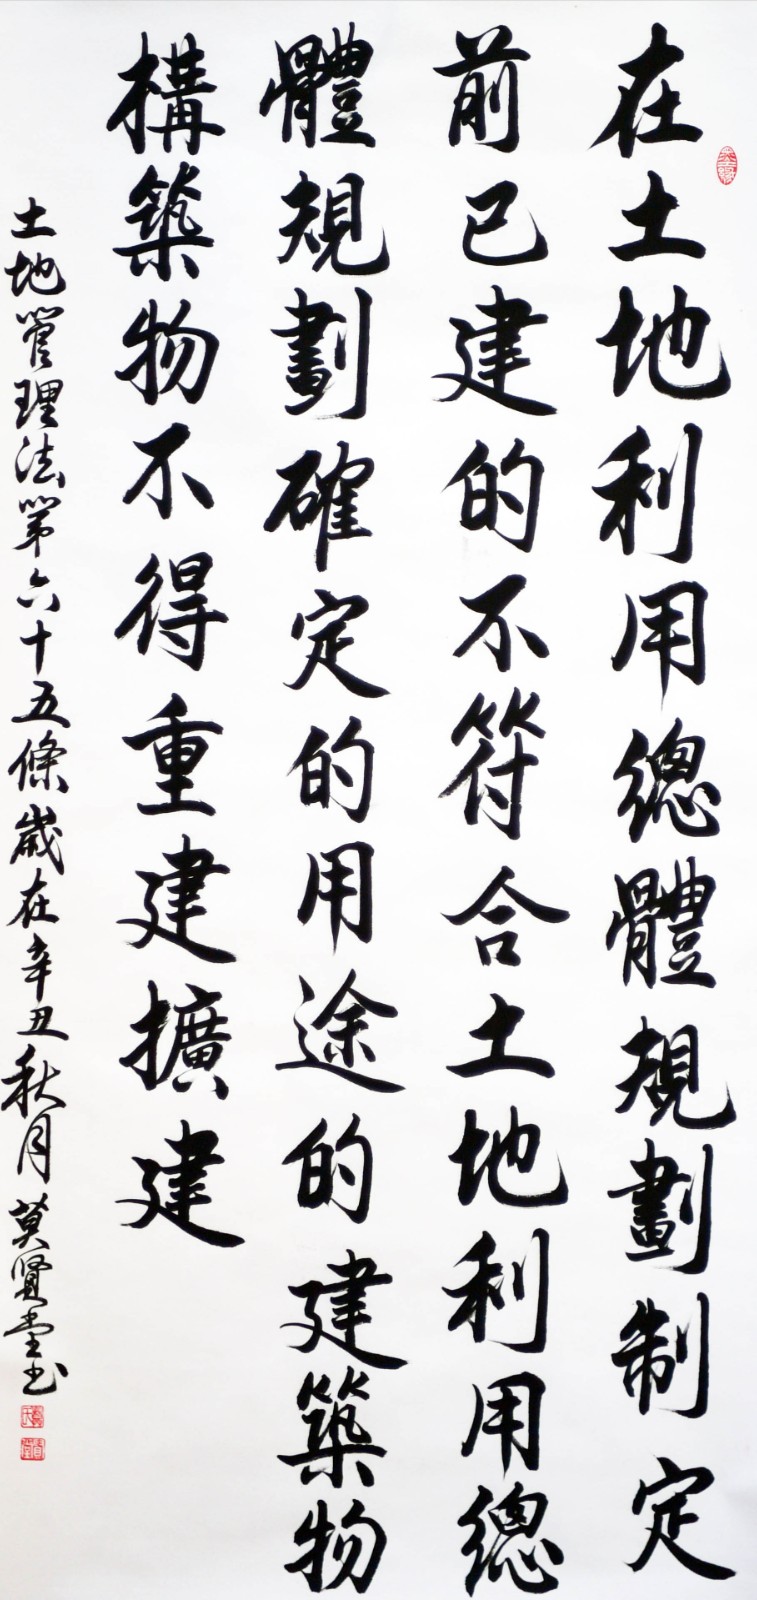 在土地利用總體規劃制定
前已建的不符合土地利用總
體規劃確定的用途的建築物
構築物不得重建擴建
土地管理法第六十五條歲在辛丑秋月莫賢堂書